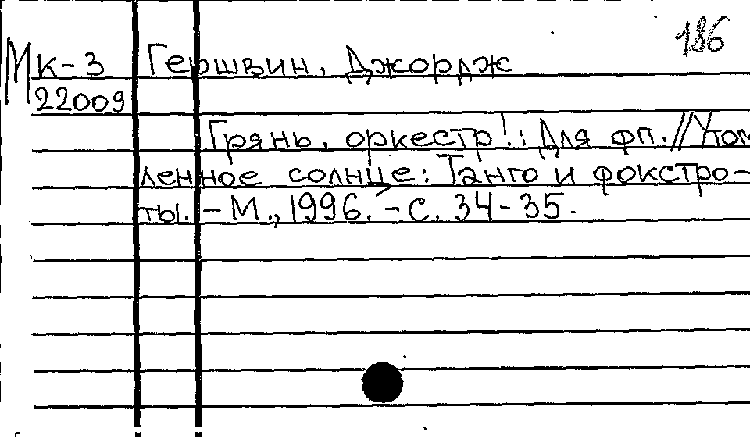 186
Мк-3 Гершвин, Джордж
22009
Грянь, оркестр!: Для фп. // Утом-
ленное солнце: Танго и фокстро-
ты. - М., 1996. - С. 34-35.